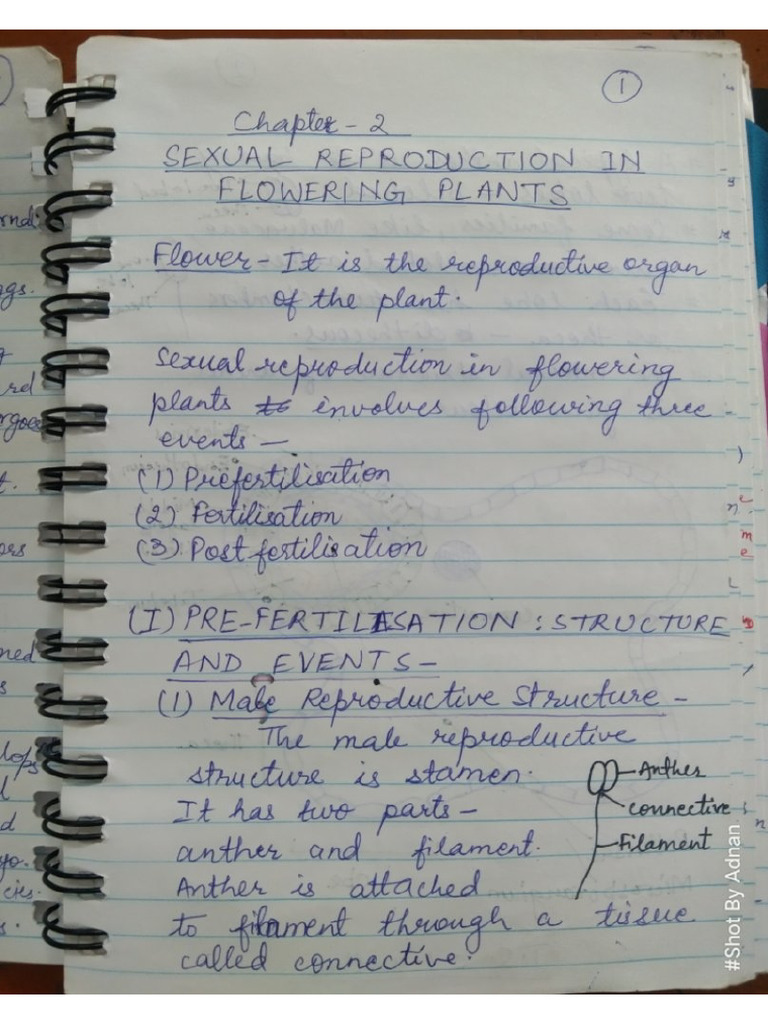 1
Chapter - 2
SEXUAL REPRODUCTION IN
FLOWERING PLANTS
Flower - It is the reproductive organ
of the plant.
Sexual reproduction in flowering
plants to involves following three
events —
(1) Prefertilisation
(2) Fertilisation
(3) Post fertilisation
(I) PRE-FERTILISATION : STRUCTURE
AND EVENTS —
(1) Male Reproductive Structure -
The male reproductive
structure is stamen.
It has two parts -
anther and filament.
Anther is attached
to filament through a tissue
called connective.
Anther
connective
Filament
#Shot By Adnan